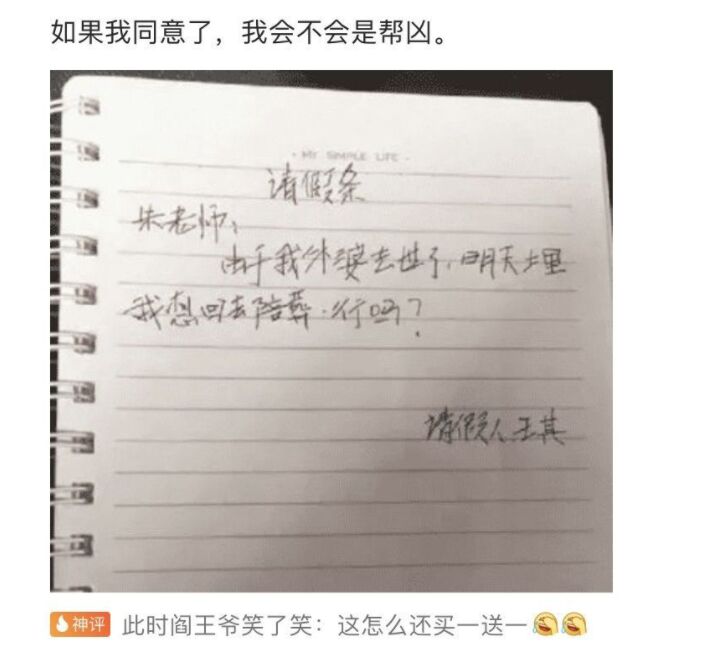 如果我同意了，我会不会是帮凶。
· MY SIMPLE LIFE ·
请假条
朱老师：
由于我外婆去世了，明天埋
我想回去陪葬，行吗？
请假人 王其
神评 此时阎王爷笑了笑：这怎么还买一送一😂😂